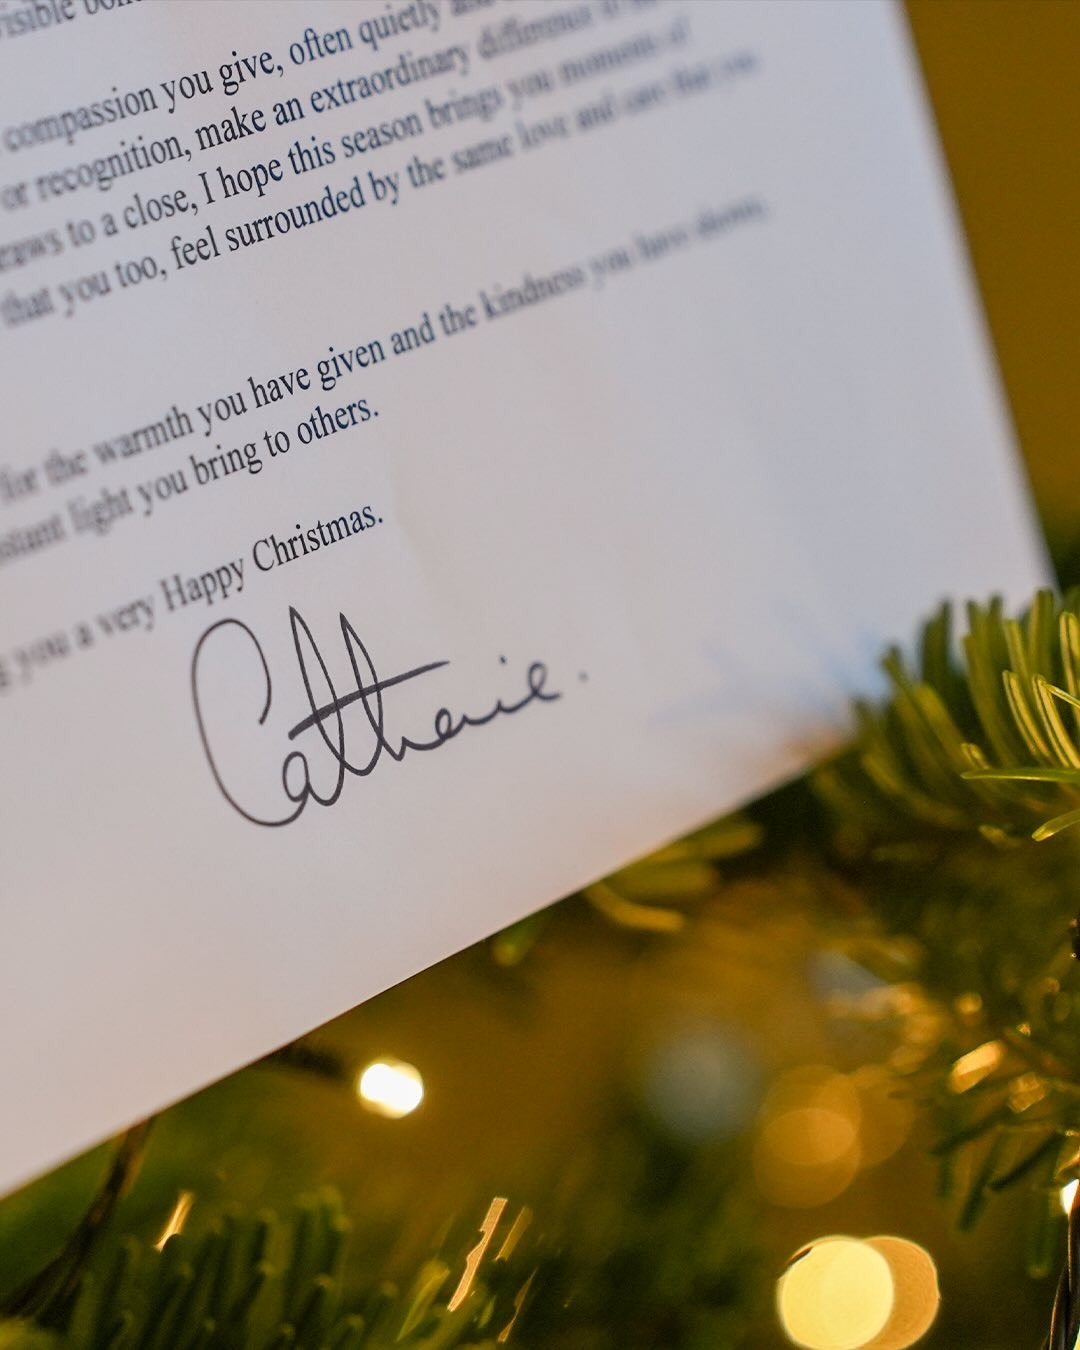 compassion you give, often quietly and
or recognition, make an extraordinary difference to
to a close, I hope this season brings you moments of
that you too, feel surrounded by the same love and care that you
for the warmth you have given and the kindness you have shown,
light you bring to others.
you a very Happy Christmas.
Catherine.